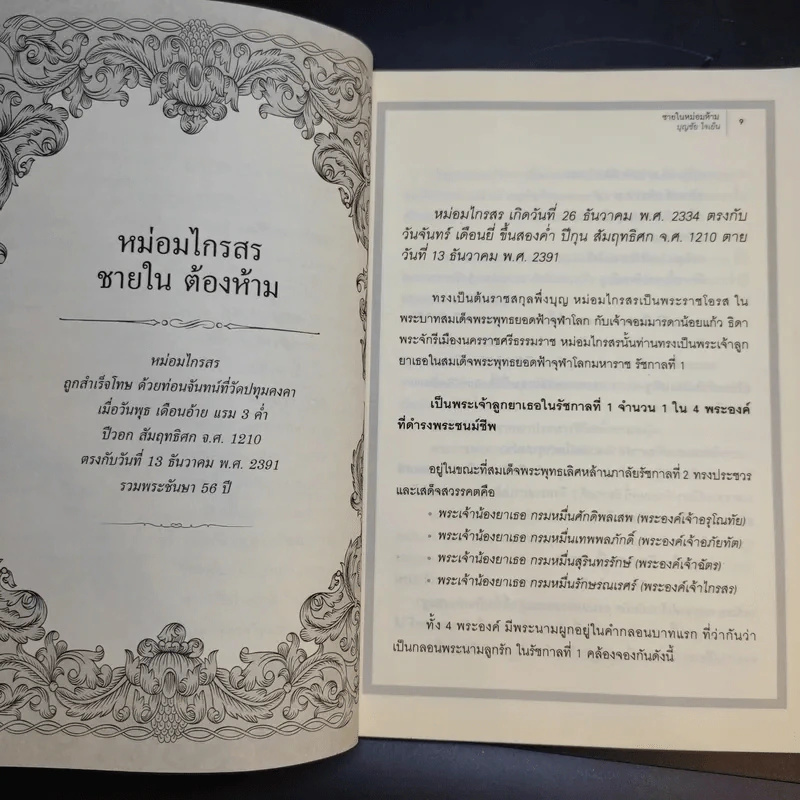 หม่อมไกรสร
ชายใน ต้องห้าม
หม่อมไกรสร
ถูกสำเร็จโทษ ด้วยท่อนจันทน์ที่วัดปทุมคงคา
เมื่อวันพุธ เดือนอ้าย แรม 3 ค่ำ
ปีวอก สัมฤทธิศก จ.ศ. 1210
ตรงกับวันที่ 13 ธันวาคม พ.ศ. 2391
รวมพระชันษา 56 ปี
ชายในหม่อมห้าม
บุญชัย ใจเย็น
9
หม่อมไกรสร เกิดวันที่ 26 ธันวาคม พ.ศ. 2334 ตรงกับ
วันจันทร์ เดือนยี่ ขึ้นสองค่ำ ปีกุน สัมฤทธิศก จ.ศ. 1210 ตาย
วันที่ 13 ธันวาคม พ.ศ. 2391
ทรงเป็นต้นราชสกุลพึ่งบุญ หม่อมไกรสรเป็นพระราชโอรส ใน
พระบาทสมเด็จพระพุทธยอดฟ้าจุฬาโลก กับเจ้าจอมมารดาน้อยแก้ว ธิดา
พระจักรีเมืองนครราชศรีธรรมราช หม่อมไกรสรนั้นท่านทรงเป็นพระเจ้าลูก
ยาเธอในสมเด็จพระพุทธยอดฟ้าจุฬาโลกมหาราช รัชกาลที่ 1
เป็นพระเจ้าลูกยาเธอในรัชกาลที่ 1 จำนวน 1 ใน 4 พระองค์
ที่ดำรงพระชนม์ชีพ
อยู่ในขณะที่สมเด็จพระพุทธเลิศหล้านภาลัยรัชกาลที่ 2 ทรงประชวร
และเสด็จสวรรคตคือ
• พระเจ้าน้องยาเธอ กรมหมื่นศักดิพลเสพ (พระองค์เจ้าอรุโณทัย)
• พระเจ้าน้องยาเธอ กรมหมื่นเทพพลภักดิ์ (พระองค์เจ้าอภัยทัต)
• พระเจ้าน้องยาเธอ กรมหมื่นสุรินทรรักษ์ (พระองค์เจ้าฉัตร)
• พระเจ้าน้องยาเธอ กรมหมื่นรักษรณเรศร์ (พระองค์เจ้าไกรสร)
ทั้ง 4 พระองค์ มีพระนามผูกอยู่ในคำกลอนบาทแรก ที่ว่ากันว่า
เป็นกลอนพระนามลูกรัก ในรัชกาลที่ 1 คล้องจองกันดังนี้